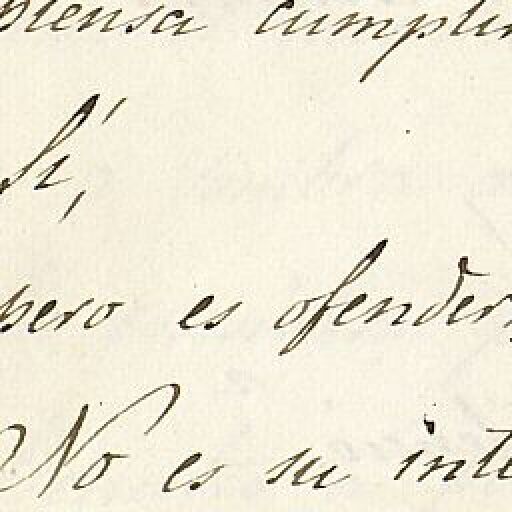 piensa cumplir
Sí,
pero es ofender
No es su inte